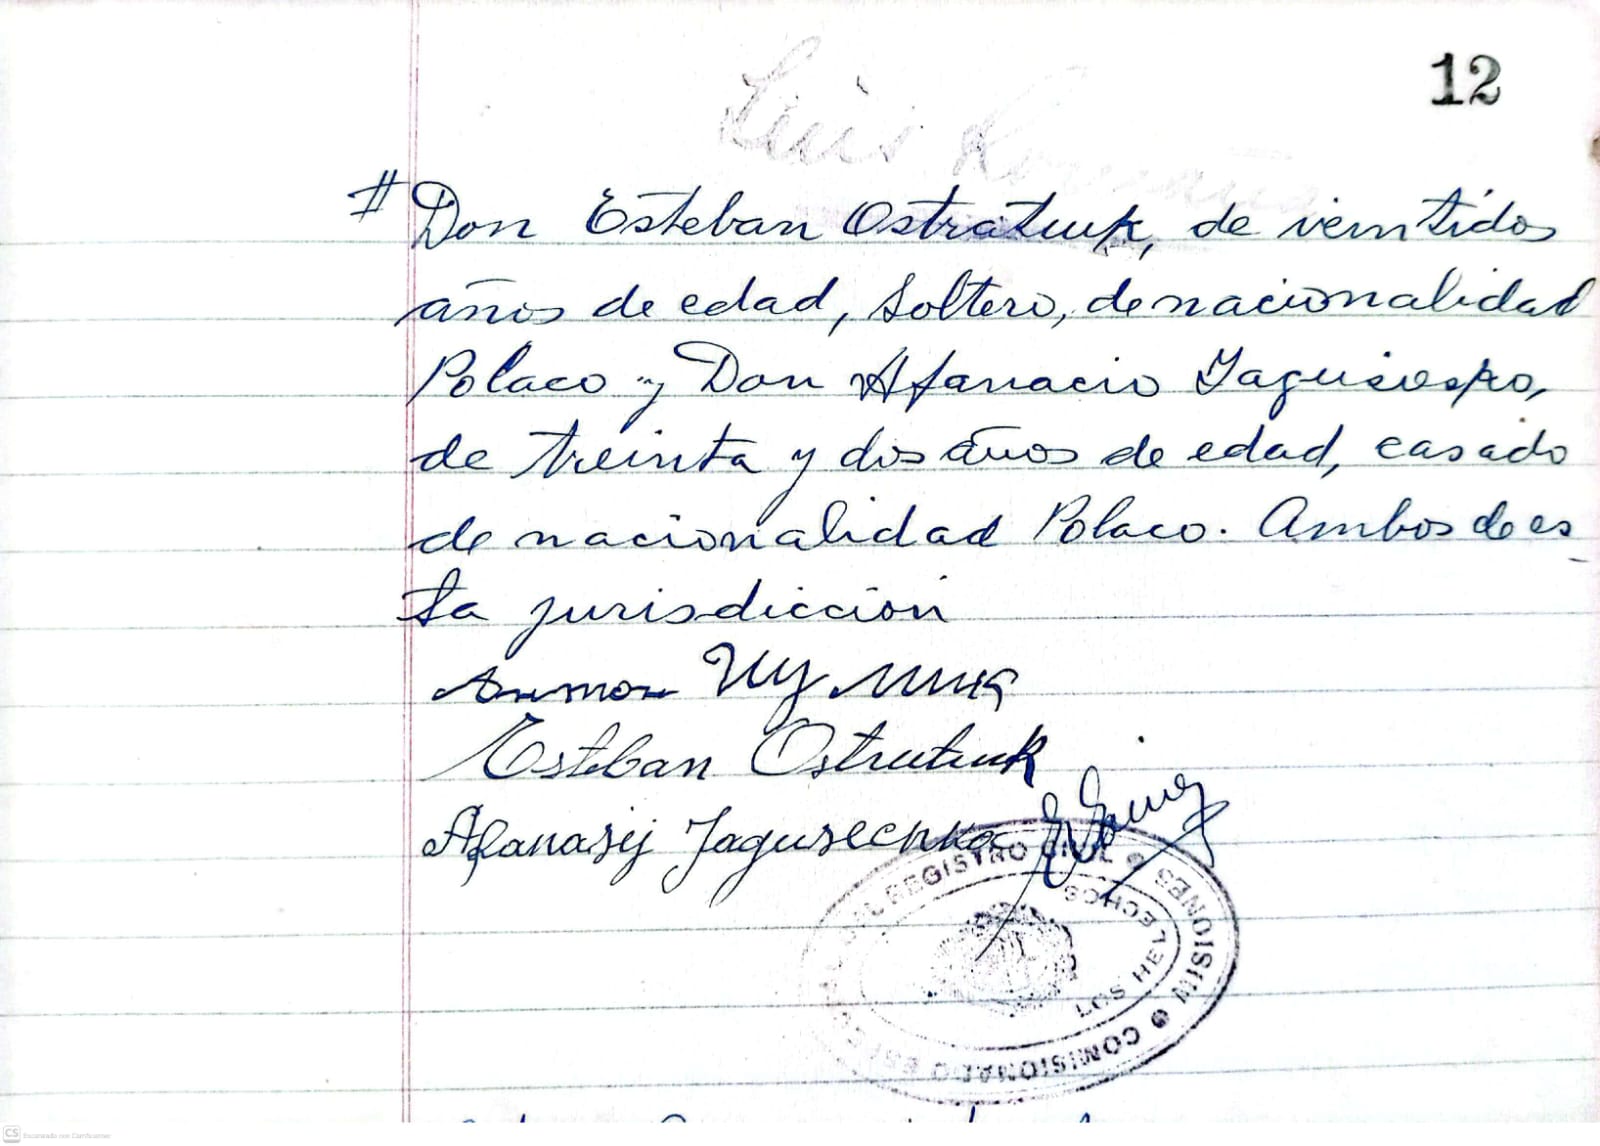 12
Luis
# Don Esteban Ostratiuk, de veintidos
años de edad, soltero, de nacionalidad
Polaco y Don Afanacio
de treinta y dos años de edad, casado
de nacionalidad Polaco. Ambos de es
ta jurisdiccion
Esteban Ostratiuk
Afanasij
REGISTRO CIVIL MISIONES COMISIONADO
LOS HELECHOS
CS Escaneado con CamScanner